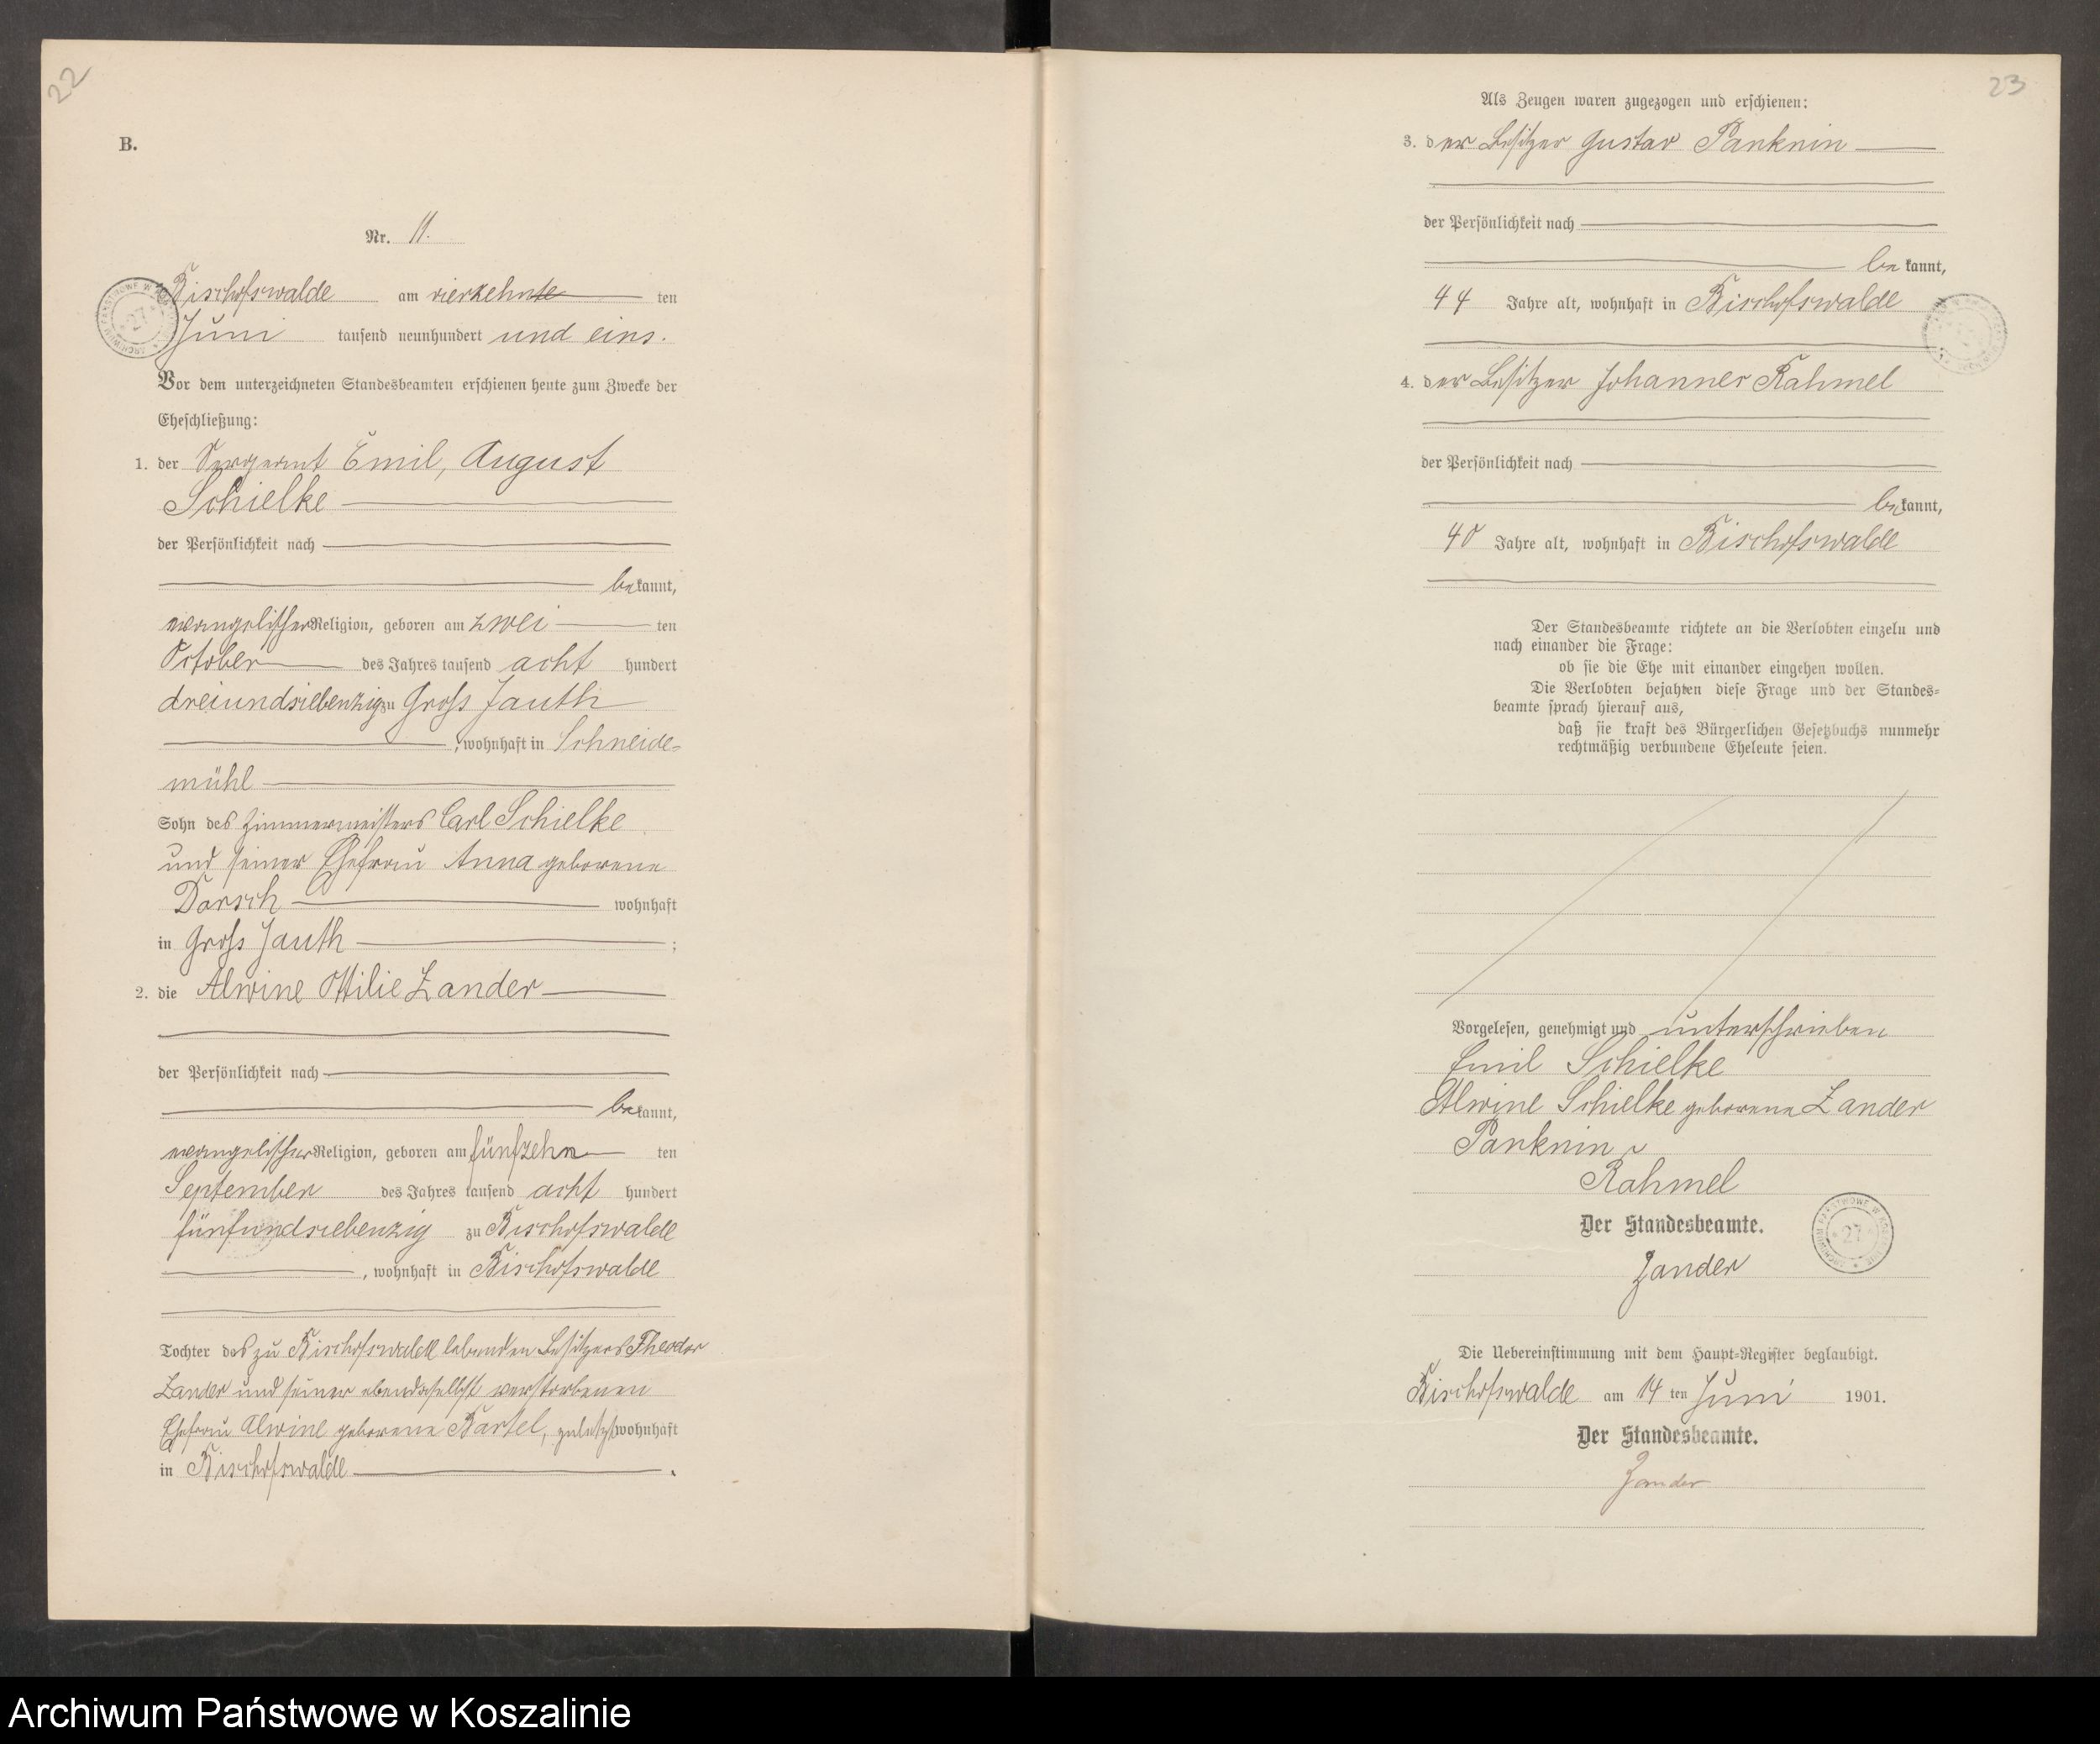 22
B.
Nr. 11.
Bischofswalde am vierzehnte ten
Juni tausend neunhundert und eins.
Vor dem unterzeichneten Standesbeamten erschienen heute zum Zwecke der
Eheschließung:
1. der Sergeant Emil, August
Schielke
der Persönlichkeit nach
bekannt,
evangelischer Religion, geboren am zwei ten
October des Jahres tausend acht hundert
dreiundsiebenzig zu Gross Jauth
, wohnhaft in Schneide=
mühl
Sohn des Zimmermeisters Carl Schielke
und seiner Ehefrau Anna geborene
Dorsch wohnhaft
in Gross Jauth ;
2. die Alwine Ottilie Zander
der Persönlichkeit nach
bekannt,
evangelischer Religion, geboren am fünfzehn ten
September des Jahres tausend acht hundert
fünfundsiebenzig zu Bischofswalde
, wohnhaft in Bischofswalde
Tochter des zu Bischofswalde lebenden Besitzers Theodor
Zander und seiner ebendaselbst verstorbenen
Ehefrau Alwine geborene Bartel, zuletzt wohnhaft
in Bischofswalde .
23
Als Zeugen waren zugezogen und erschienen:
3. der Besitzer Gustav Panknin
der Persönlichkeit nach
bekannt,
44 Jahre alt, wohnhaft in Bischofswalde
4. der Besitzer Johannes Rahmel
der Persönlichkeit nach
bekannt,
40 Jahre alt, wohnhaft in Bischofswalde
Der Standesbeamte richtete an die Verlobten einzeln und
nach einander die Frage:
ob sie die Ehe mit einander eingehen wollen.
Die Verlobten bejahten diese Frage und der Standes=
beamte sprach hierauf aus,
daß sie kraft des Bürgerlichen Gesetzbuchs nunmehr
rechtmäßig verbundene Eheleute seien.
Vorgelesen, genehmigt und unterschrieben
Emil Schielke
Alwine Schielke geborene Zander
Panknin
Rahmel
Der Standesbeamte.
Zander
Die Uebereinstimmung mit dem Haupt=Register beglaubigt.
Bischofswalde am 14 ten Juni 1901.
Der Standesbeamte.
Zander
Archiwum Państwowe w Koszalinie